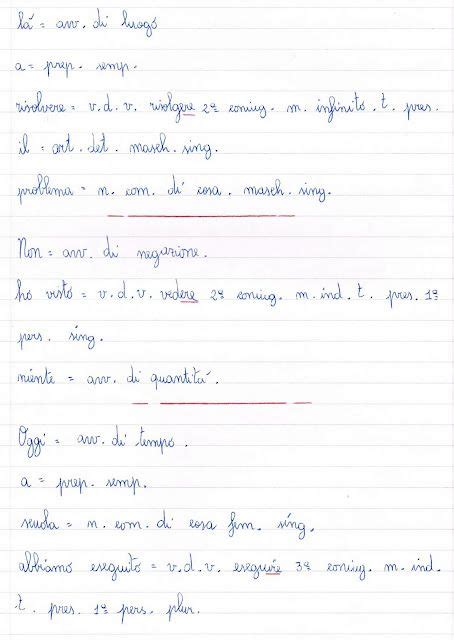 là = avv. di luogo
a = prep. semp.
risolvere = v.d.v. risolgere 2ª coniug. m. infinito. t. pres.
il = art. det. masch. sing.
problema = n. com. di cosa. masch. sing.
Non = avv. di negazione.
ho visto = v.d.v. vedere 2ª coniug. m. ind. t. pres. 1ª
pers. sing.
niente = avv. di quantità.
Oggi = avv. di tempo.
a = prep. semp.
scuola = n. com. di cosa fem. sing.
abbiamo eseguito = v.d.v. eseguire 3ª coniug. m. ind.
t. pres. 1ª pers. plur.